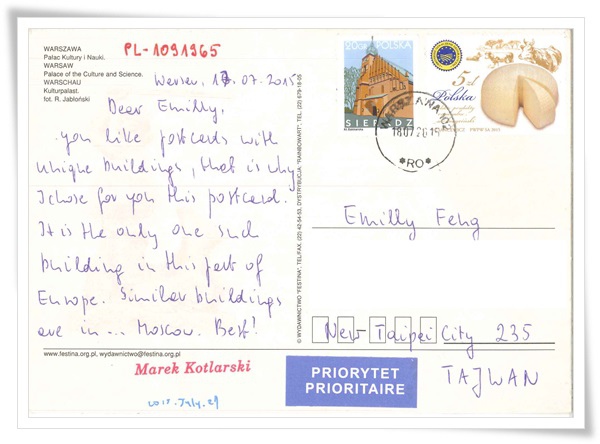 PL-1091965
WARSZAWA
Pałac Kultury i Nauki.
WARSAW
Palace of the Culture and Science.
WARSCHAU
Kulturpalast.
fot. R. Jabłoński
Warsaw, 17.07.2015
Dear Emilly,
you like postcards with
unique buildings, that is why
I chose for you this postcard.
It is the only one such
building in this part of
Europe. Similar buildings
are in ... Moscow. Best!
www.festina.org.pl, wydawnictwo@festina.org.pl
Marek Kotlarski
2015. July. 29
© WYDAWNICTWO "FESTINA", TEL./FAX. (22) 842-54-53, DYSTRYBUCJA: "RAINBOWART", TEL. (22) 679-18-05
200 gr POLSKA
SIERADZ
5 zł
Polska
WARSZAWA 102
18.07.2015
*RO*
Emilly Feng
New-Taipei City 235
TAJWAN
PRIORYTET
PRIORITAIRE